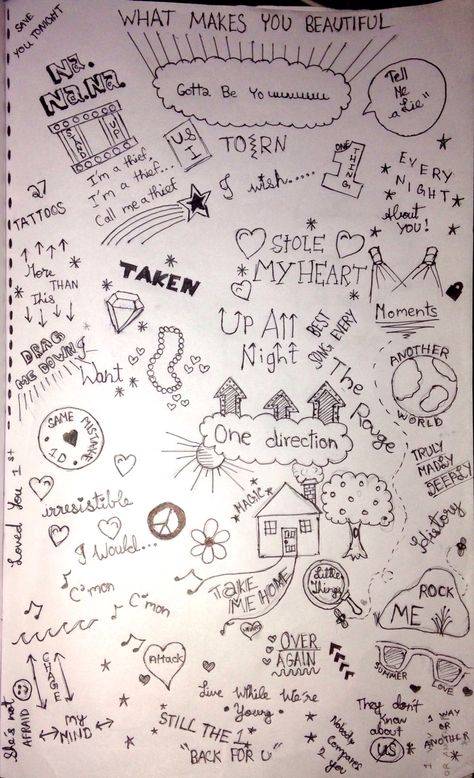 SAVE
YOU TONIGHT
WHAT MAKES YOU BEAUTIFUL
Na.
Na.Na.
Gotta Be Youuuuuu
Tell
Me
a Lie"
STAND
UP
US
I
TORN
I'm a thief..
I'm a thief...
Call me a thief
I wish.....
ONE
THING
1
EVERY
NIGHT
About
YOU!
27
TATTOOS
STOLE
MY HEART
More
THAN
This
TAKEN
Moments
UP All
Night
BEST
SONG EVERY
DRAG
ME DOWN
Want
The Rouge
ANOTHER
WORLD
SAME MISTAKE
1D
One direction
TRULY
MADLY
DEEPLY
Loved You 1st
irresistible
MAGIC
History
I Would...
C'mon
C'mon
TAKE
ME HOME
Little
Things
ROCK
ME
OVER
AGAIN
Attack
SUMMER
LOVE
CHANGE
MY
MIND
She's not
AFRAID
Live While We're
Young
STILL THE 1
"BACK FOR U"
Nobody
Compares
2 You
They don't
Know
about
US
1 WAY
OR
ANOTHER